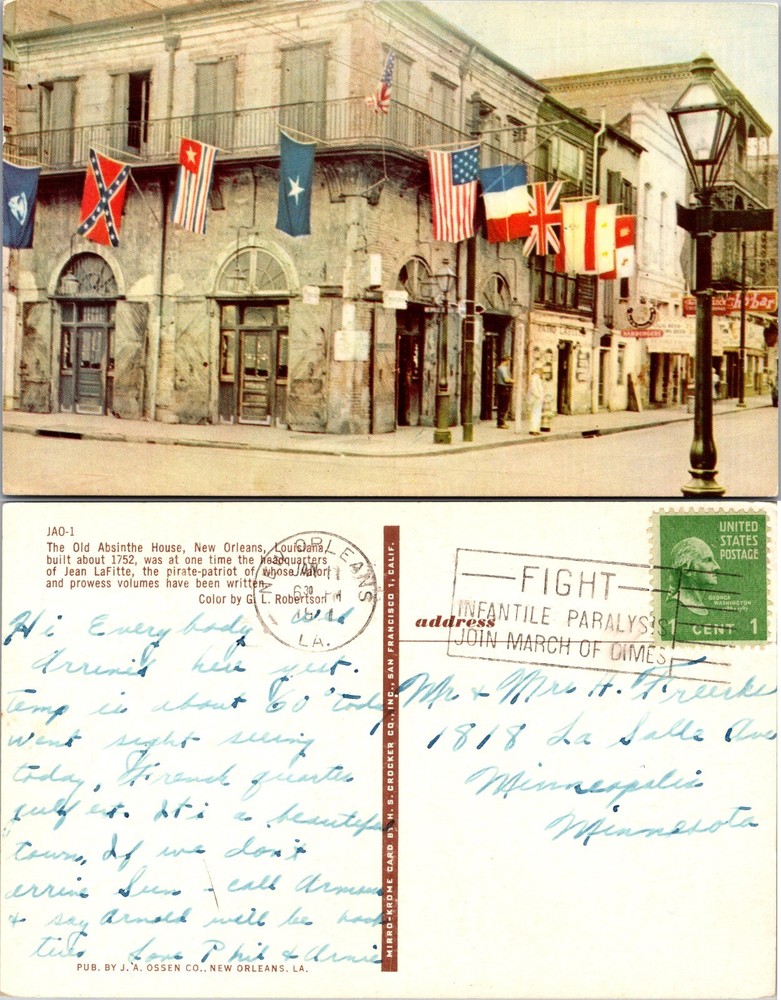 HAMBURGERS
JAO-1
The Old Absinthe House, New Orleans, Louisiana,
built about 1752, was at one time the headquarters
of Jean LaFitte, the pirate-patriot of whose valor
and prowess volumes have been written.
Color by G. T. Robertson
NEW ORLEANS
JAN 11
6 30 PM
1951
LA.
FIGHT
INFANTILE PARALYSIS
JOIN MARCH OF DIMES
UNITED
STATES
POSTAGE
GEORGE
WASHINGTON
CENT 1
address
Hi Everybody
Arrived here yest.
temp is about 60° today
went sight seeing
today, French quarter
gulf et. It's a beautiful
town, If we don't
arrive Sun - call
& say Arnold will be back
tues Love Phil & Arnie
Mr & Mrs H.
1818 La Salle Ave
Minneapolis
Minnesota
MIRRO-KROME CARD BY H. S. CROCKER CO., INC., SAN FRANCISCO 1, CALIF.
PUB. BY J. A. OSSEN CO., NEW ORLEANS, LA.